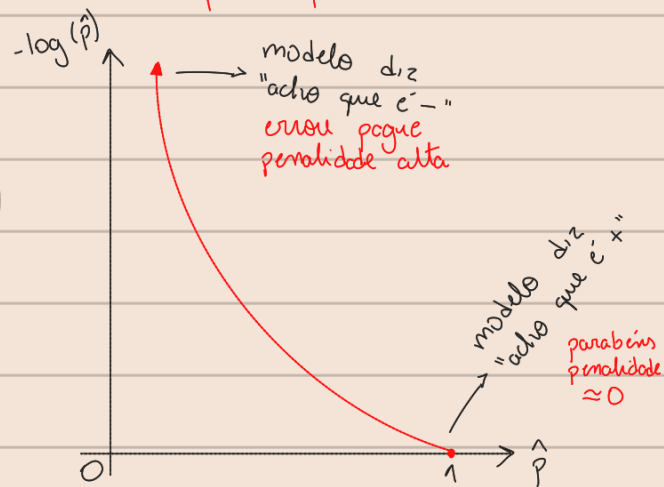 -log(p̂)
modelo diz
"acho que é -"
errou pague
penalidade alta
modelo diz
"acho que é +"
parabéns
penalidade
≈0
0
1
p̂